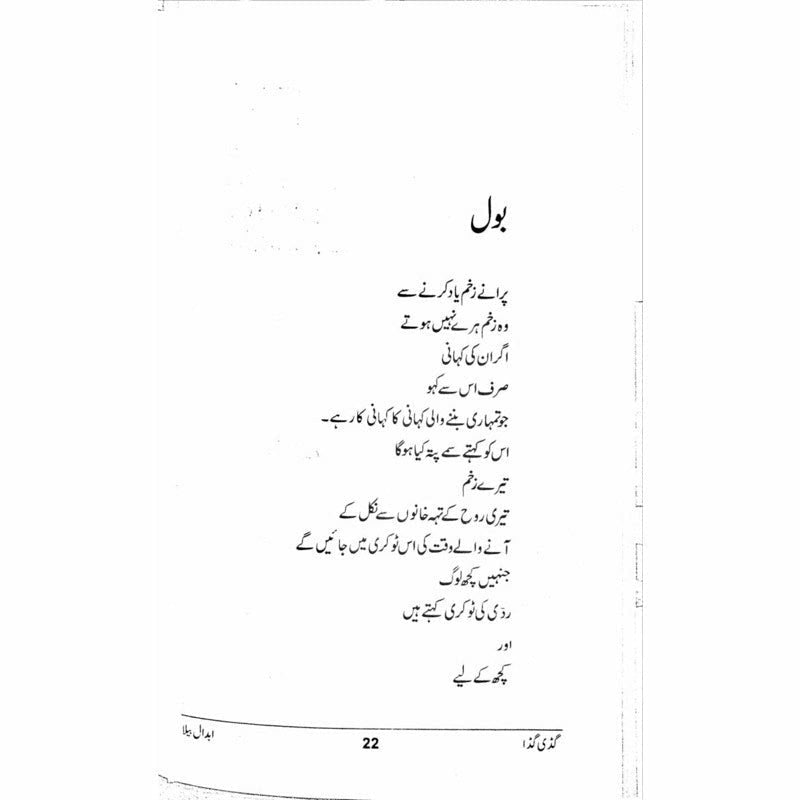 بول
پرانے زخم یاد کرنے سے
وہ زخم ہرے نہیں ہوتے
اگر ان کی کہانی
صرف اس سے کہو
جو تمہاری بننے والی کہانی کا کہانی کار ہے۔
اس کو کہتے سمے پتہ کیا ہوگا
تیرے زخم
تیری روح کے تہہ خانوں سے نکل کے
آنے والے وقت کی اس ٹوکری میں جائیں گے
جنہیں کچھ لوگ
ردّی کی ٹوکری کہتے ہیں
اور
کچھ کے لیے
گڈی گڈا
22
ابدال بیلا